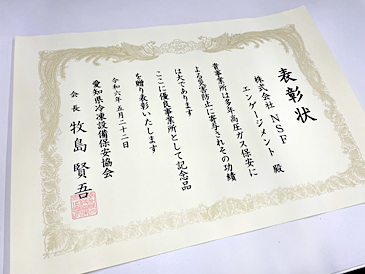 表彰状
株式会社 NSF
エンゲージメント 殿
貴事業所は多年高圧ガス保安に
よる災害防止に寄与されその功績
は大であります
ここに優良事業所として記念品
を贈り表彰いたします
令和六年五月二十二日
愛知県冷凍設備保安協会
会長 牧島賢吾